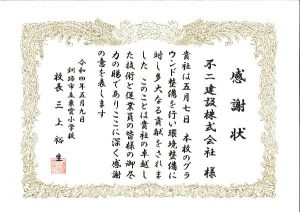 感謝状
不二建設株式会社 様
貴社は五月七日 本校のグラ
ウンド整備を行い環境整備に
対し多大なる貢献をされま
した このことは貴社の卓越し
た技術と従業員の皆様の御尽
力の賜でありここに深く感謝
の意を表します
令和四年五月九日
釧路市立東雲小学校
校長 三上裕